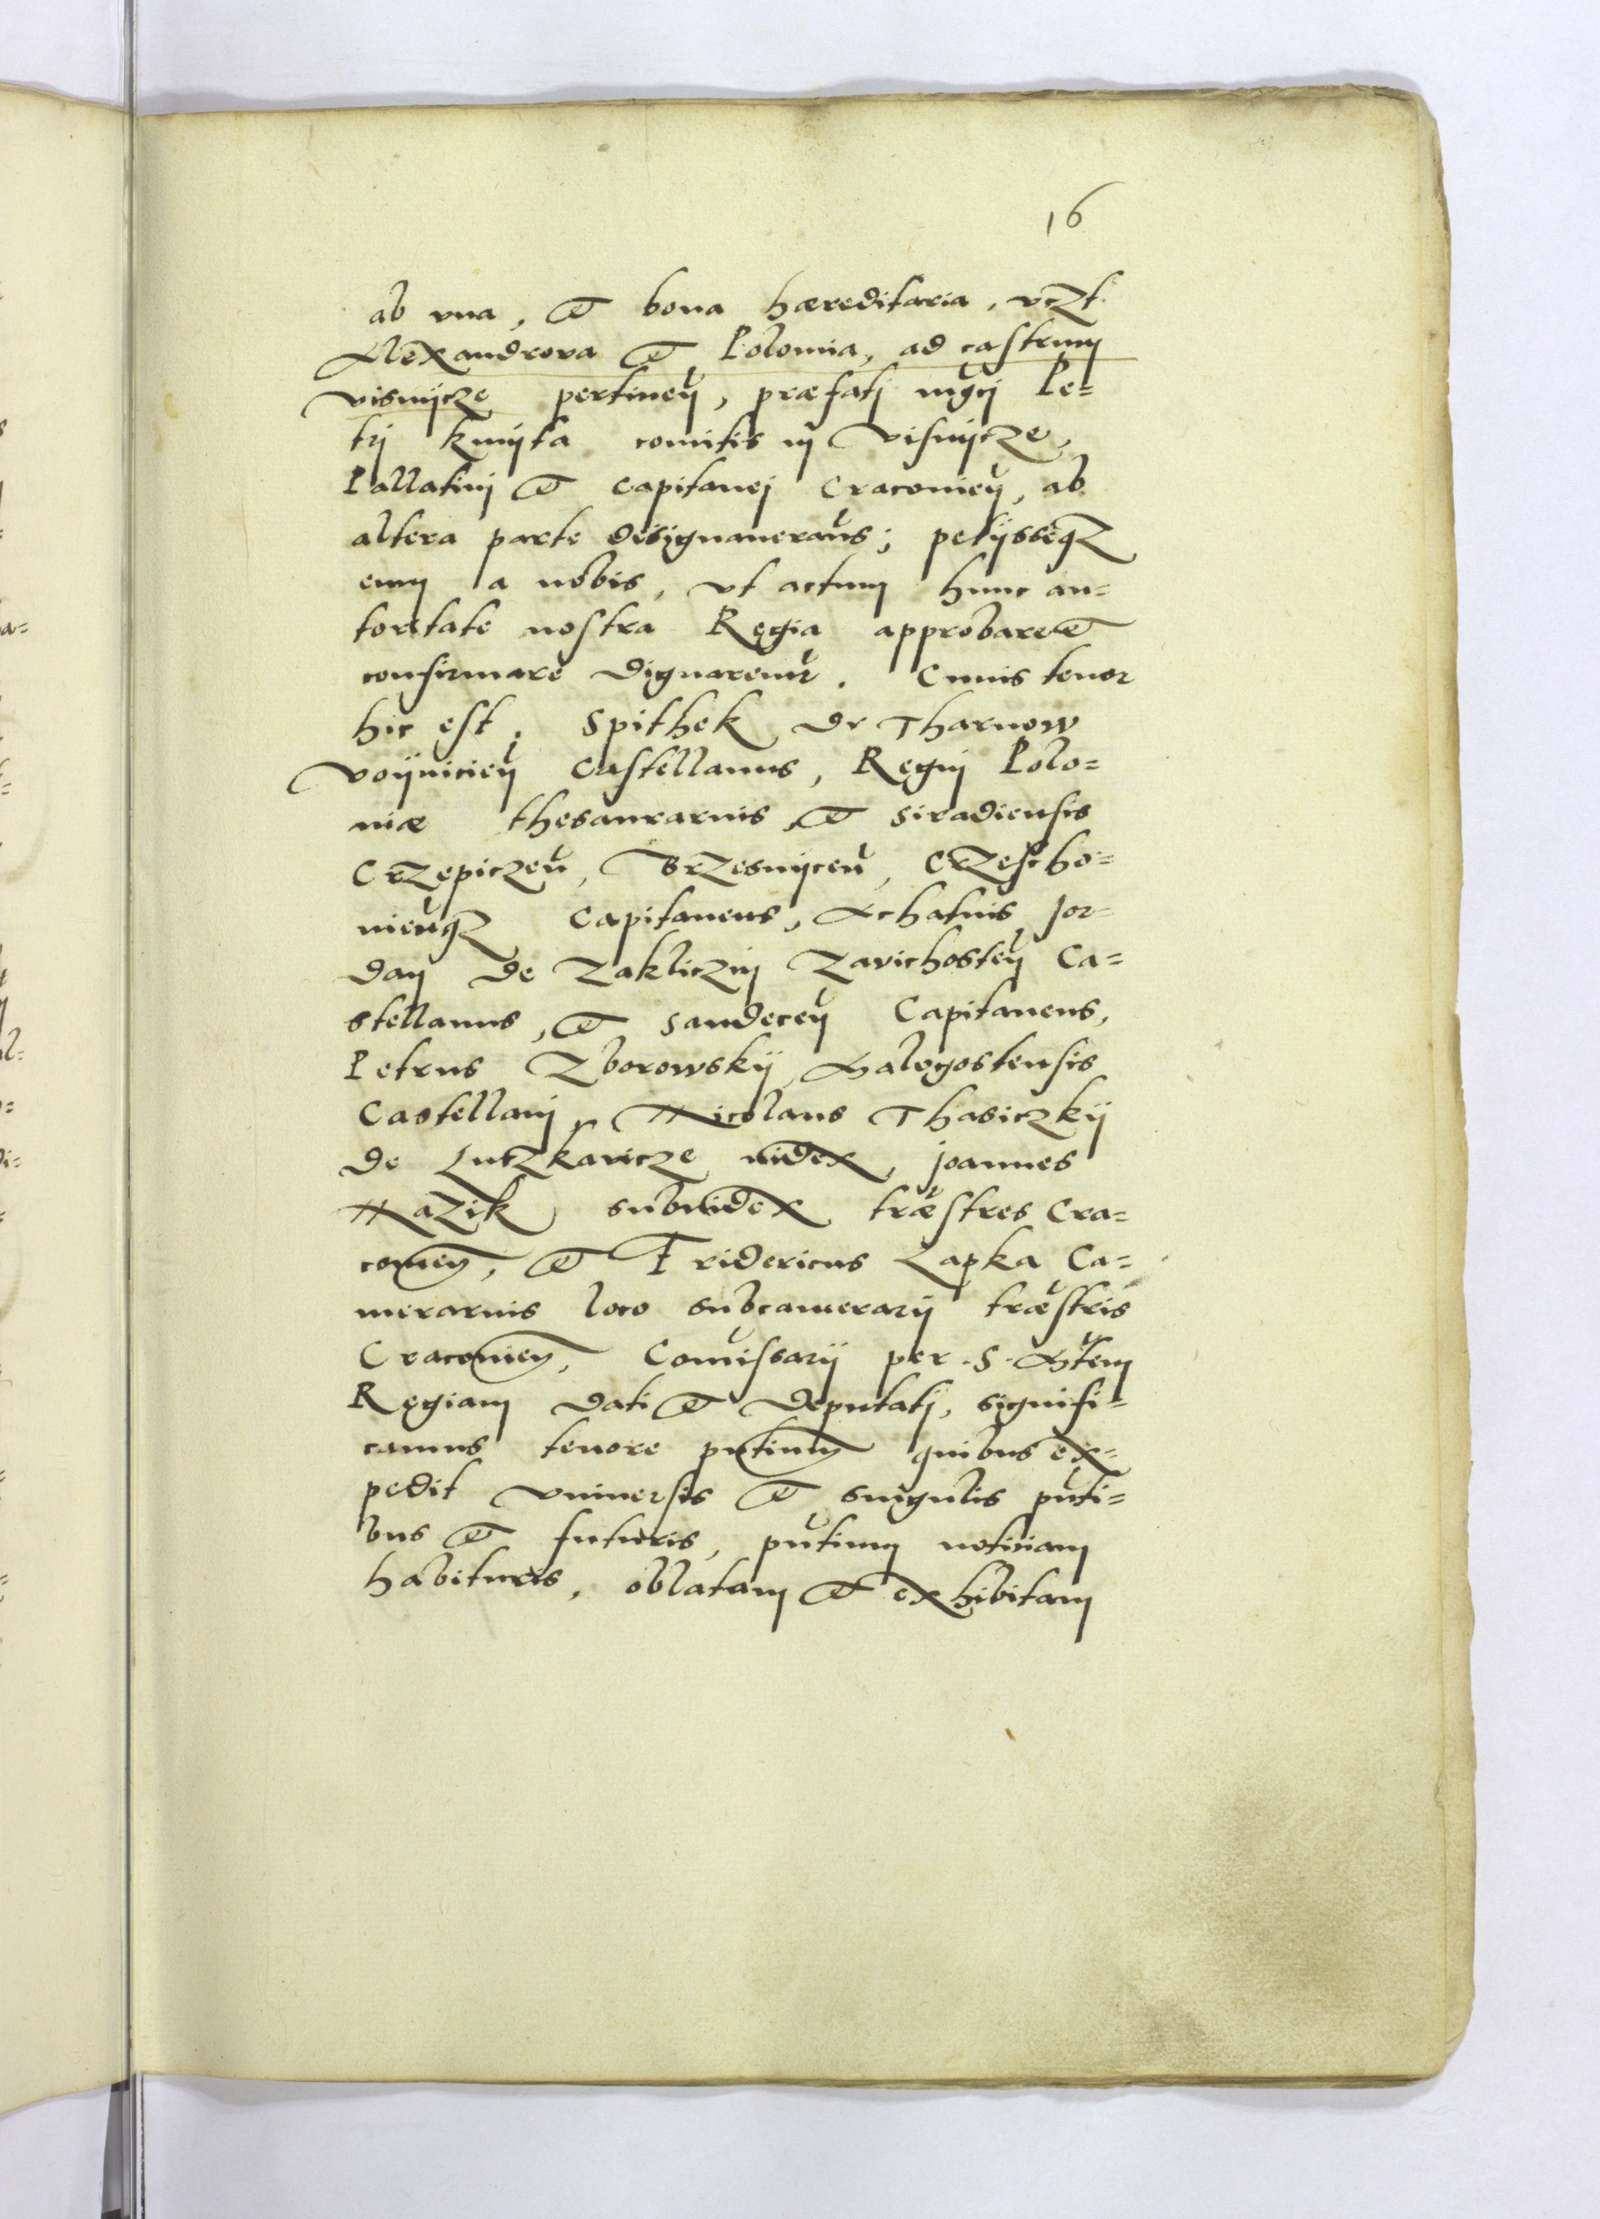 16
ab vna, et bona hæreditaria, vczt
Alexandrova et Polomia, ad castrum
visnijcze pertineñ, præfatj mgcj Pe=
trj kmijta comitis in Visnijcze,
Pallatini et Capitanej Cracovieñ, ab
altera parte designaueram̃s; petijsseqz
eum a nobis, vt actum hunc au=
toritate nostra Regia approbare et
confirmare dignaremur. Cuius tenor
hic est. Spithek de Tharnow
Voijnicieñ Castellanus, Regnj Polo=
niæ thesaurarius et Siradiensis
Crzepiczeñ, Brzesnijceñ, Crzescho=
vieñqz Capitaneus, Achatius Jor=
dan de Zakliczin Zavichosteñ Ca=
stellanus, et Sandeceñ Capitaneus,
Petrus Zborowskij Malogostensis
Castellanj, Nicolaus Thasiczkij
de Luczkavicze iudex, Joannes
Nazik subiudex træstres Cra=
covieñ, et Fridericus Lapka Ca=
merarius loco subcamerarij træstris
Cracovieñ, Comissarij per .S. Mtem
Regiam dati et deputatj, signifi=
camus tenore pñtium quibus ex=
pedit vniuersis et singulis pñti=
bus et futuris, pñtium noticiam
habituris, oblatam et exhibitam